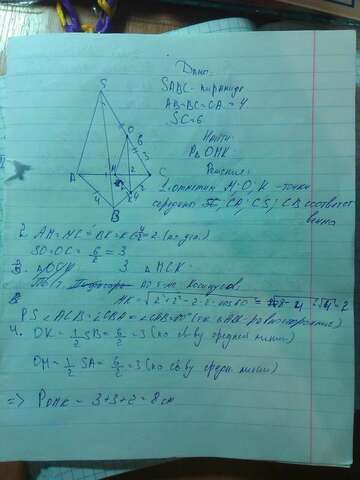 Дано:
SABC - пирамида
AB=BC=CA=4
SC=6
Найти
P_Δ OMK
Решение:
1. отметим M; O; K - точки
середины CA; CS; CB соответст
венно
2. AM=MC=BK=KC=4/2=2 (по усл.)
SO=OC=6/2=3
3. Δ MCK -
По т. косинусов
MK=√2²+2²-2·2·cos60°=√4=2
PS ∠ACB=∠CBA=∠CAB=60° (так ΔABC равносторонний)
4. OK=1/2 SB=6/2=3 (по св-ву средней линии)
OM=1/2 SA=6/2=3 (по св-ву средн. линии)
=> P_OMK=3+3+2=8 см
S
O
6
3
A
M
2
C
4
K
2
B